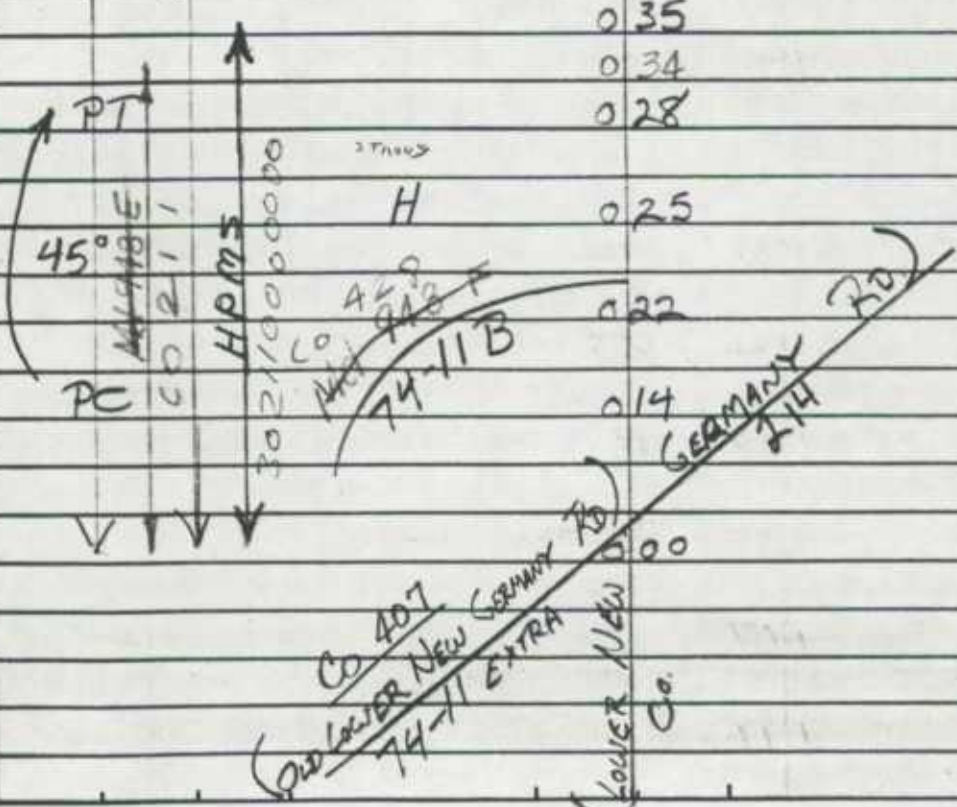 0 35
0 34
0 28
PT
H
0 25
45°
CO 211
HPMS
30211000000000
0 22
CO
74-11 B
PC
0 14
GERMANY RD
214
0 00
CO 407
(OLD LOWER NEW GERMANY RD)
74-11 EXTRA
(LOWER NEW
Co.